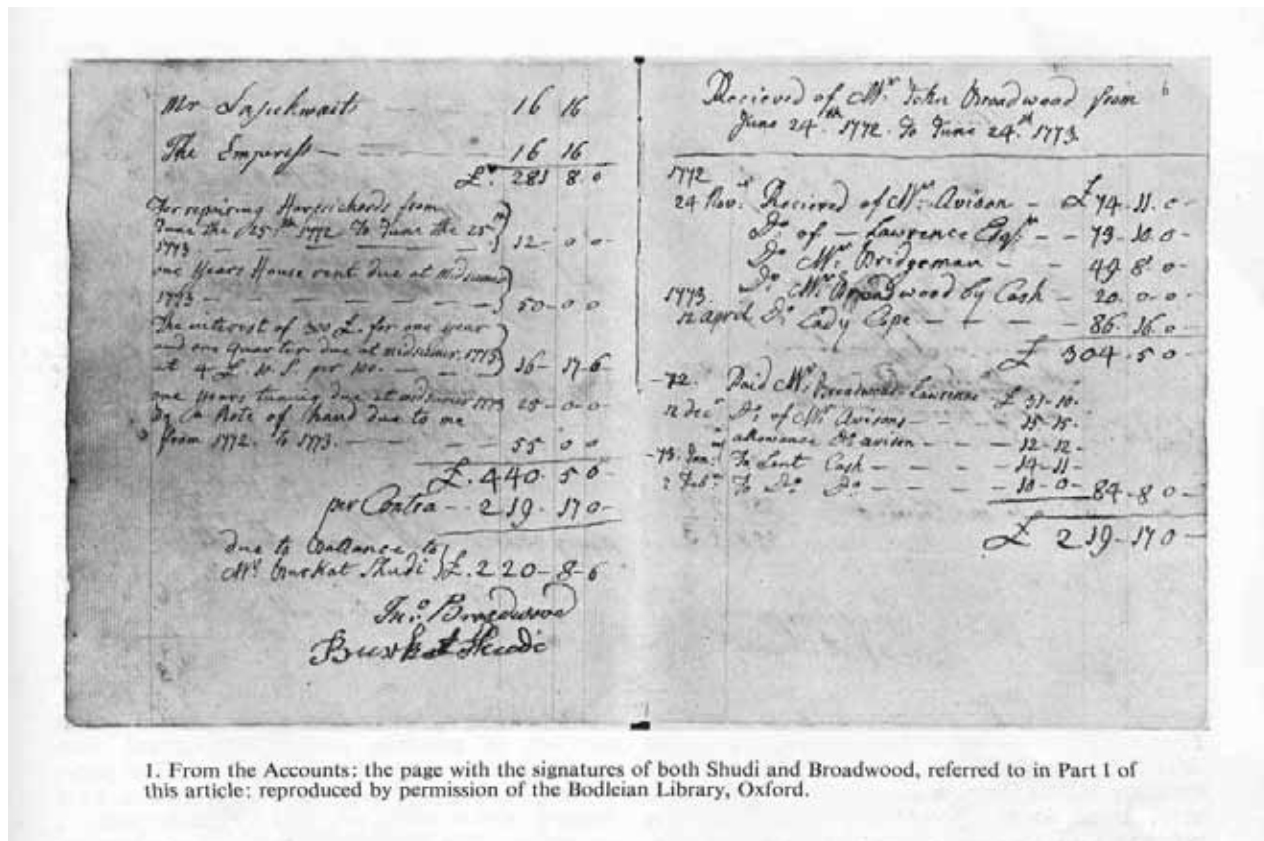 Mr 16 16
The Empress — 16 16
£. 281 8. 0
For repairing Harpsichords from
June the 25th 1772. To June the 25th
1773 — — — — 12 - 0 0
one years House rent due at midsumr
1773 — — — — — — 50 - 0 0
The interest of 300 £. for one year
and one quarter due at midsumer. 1773
at 4 £ 10. S. per 100. — — — 16 - 17 - 6
one years tuning due at midsumer 1773 25 - 0 - 0
By a Note of hand due to me
from 1772. To 1773. — — — 55 0 0
£. 440. 5 0
per Contra - - 219. 17 0 -
due to Ballance to
Mr. Burkat Shudi £. 220 - 8 - 6
Jno. Broadwood
Burkat Shudi
Recieved of Mr. John Broadwood from 6
June 24th. 1772. To June 24th. 1773
1772
24 Novr. Recieved of Mr. Avison - £ 74. 11. 0 -
Do. of — Lawrence Esqr. - - 73 - 10. 0 -
Do. Mr. Bridgeman - - 49. 8. 0 -
1773. Do. Mr. Broadwood by Cash - 20. 0. 0 -
12 april Do. Lady Cope - - - - 86. 16. 0 -
£ 304. 5 0 -
-72. Paid Mr. Broadwood Lawrence £ 31 - 10 -
12 Decr. Do. of Mr. Avisons - - - 15 - 15.
allowance Do avison - - - - 12 - 12 -
-73. Jan. To Lent Cash - - - - 14 - 11 -
2 Febr. To Do. Do. - - - - - 10 - 0 - 84 - 8 0 -
£ 219 - 17 0 -
1. From the Accounts: the page with the signatures of both Shudi and Broadwood, referred to in Part 1 of
this article: reproduced by permission of the Bodleian Library, Oxford.